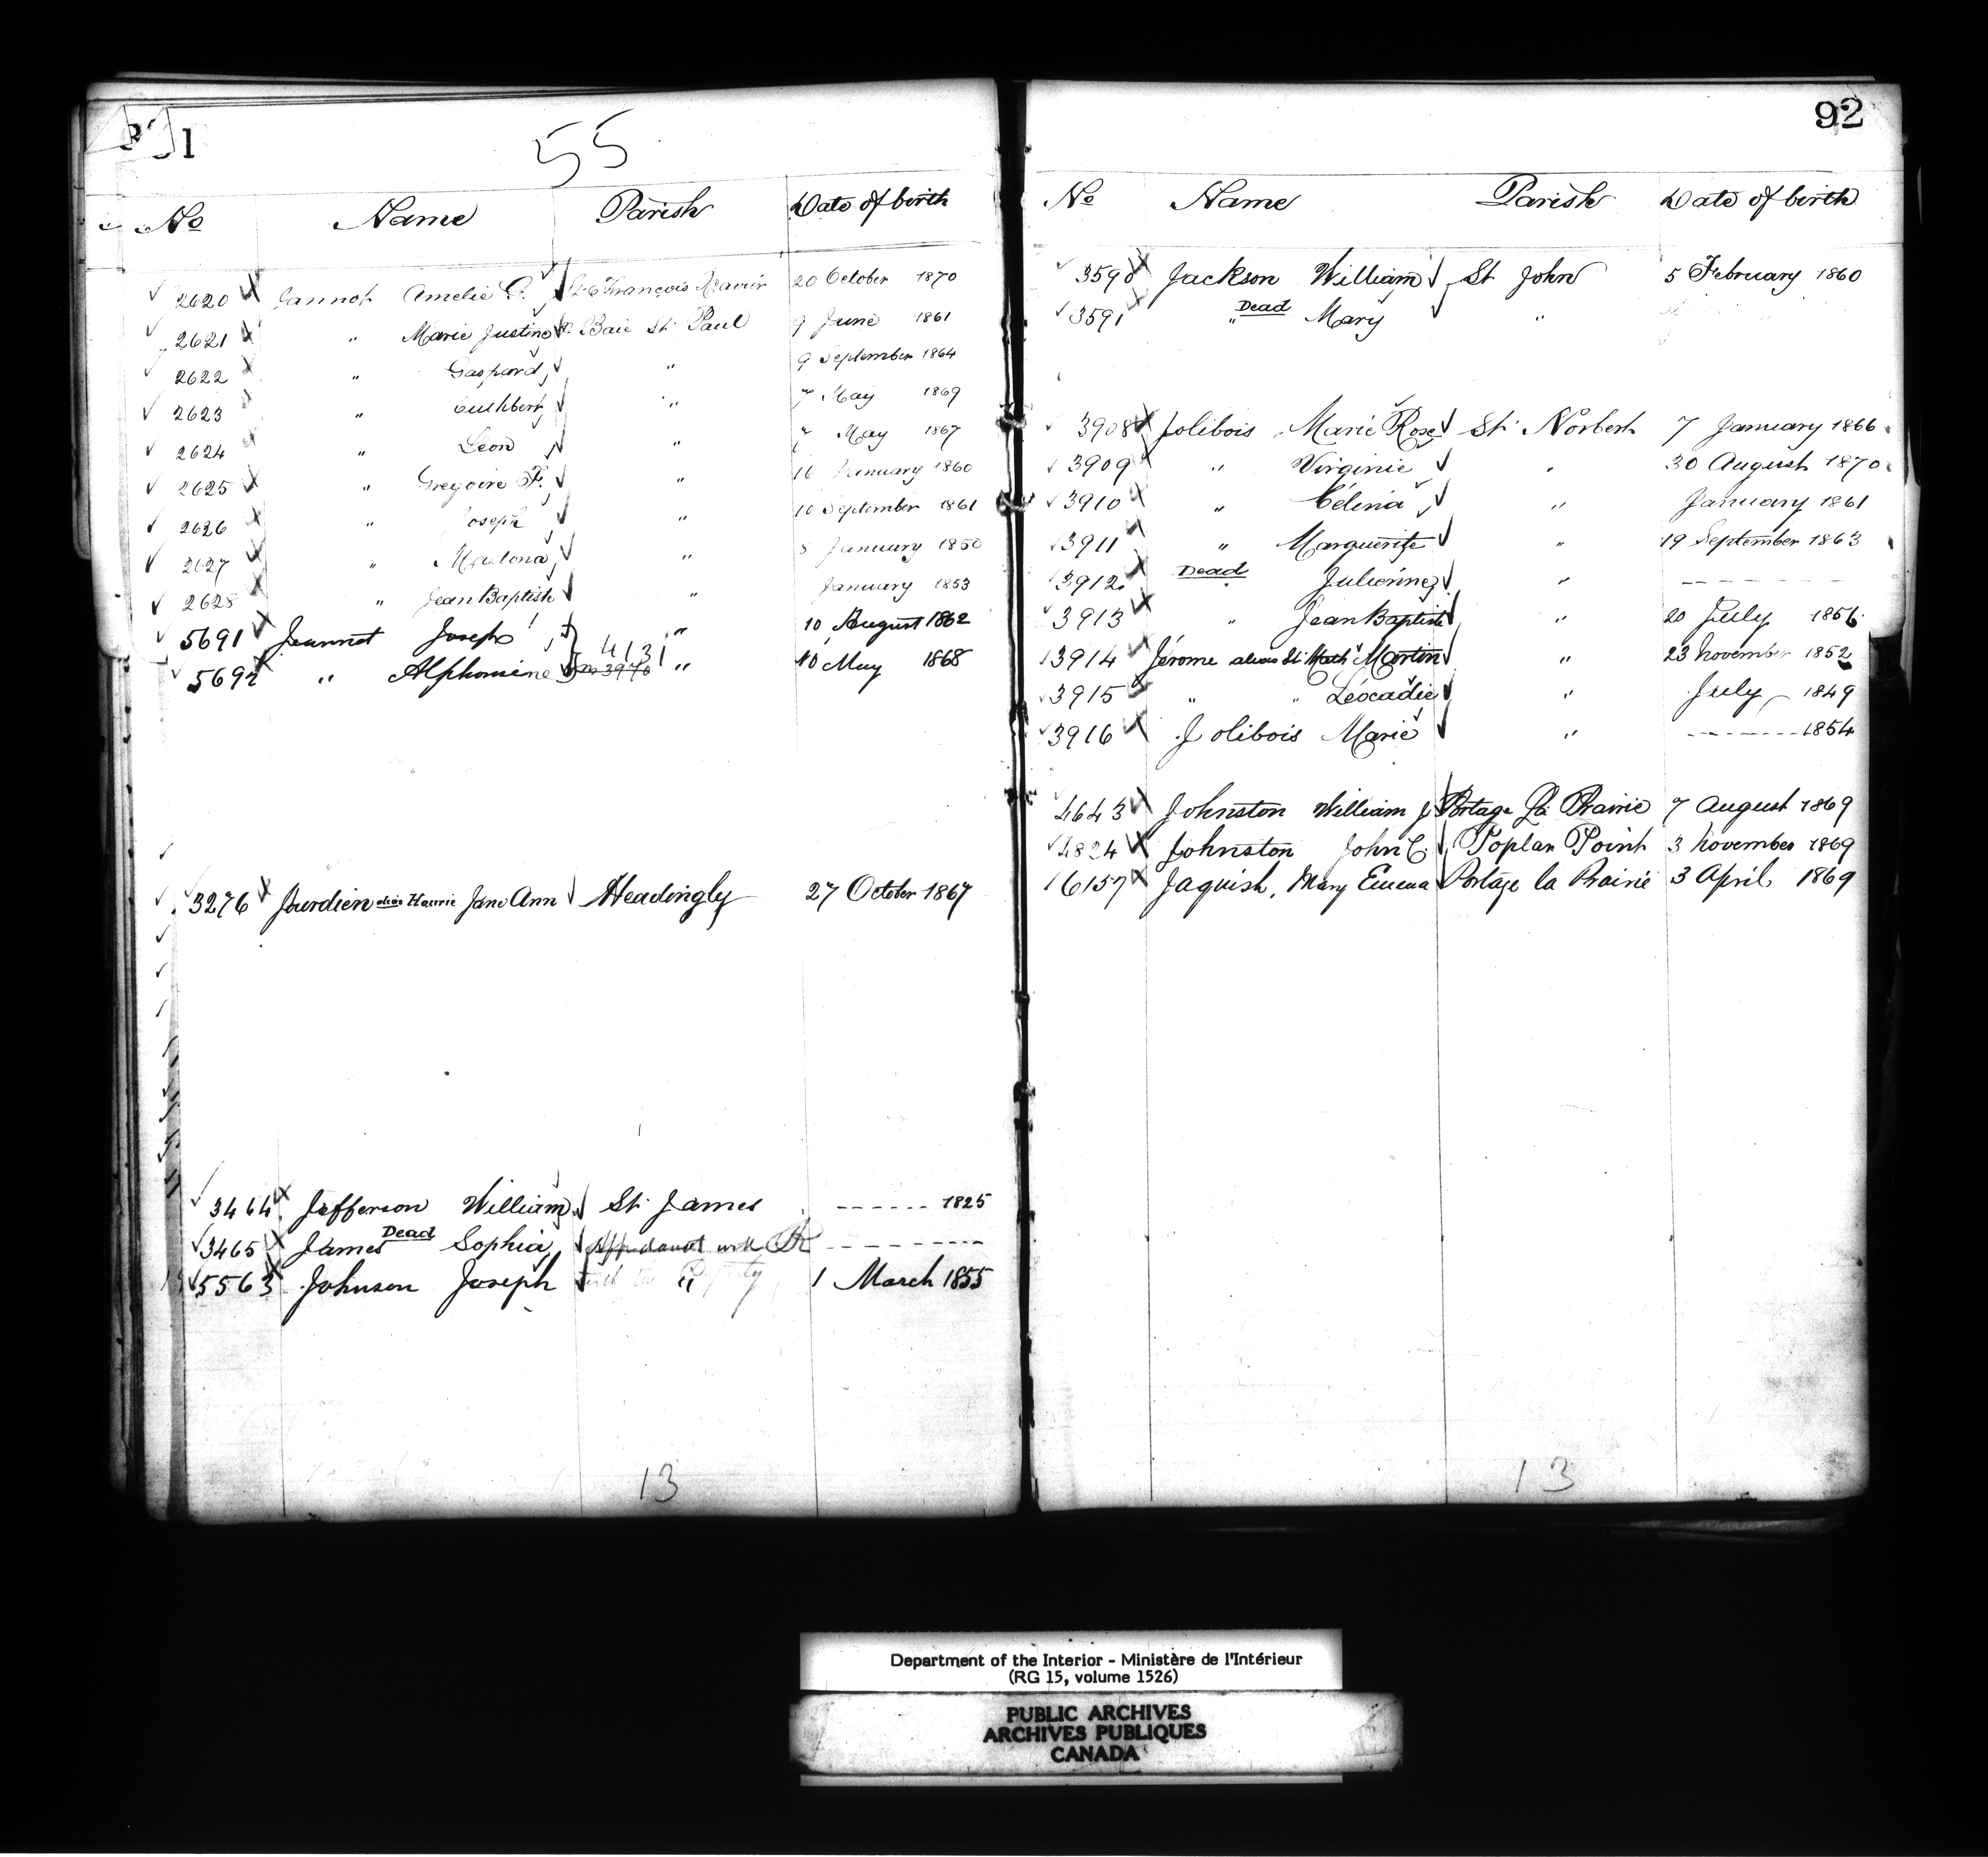 1
55
No Name Parish Date of birth
2620 Jannot Amelie C. St François Xavier 20 October 1870
2621 " Marie Justine Baie St Paul 9 June 1861
2622 " Gaspard " 9 September 1864
2623 " Cuthbert " 7 May 1869
2624 " Léon " 7 May 1867
2625 " Gregoire F. " 16 January 1860
2626 " Joseph " 10 September 1861
2627 " " 8 January 1850
2628 " Jean Baptiste " January 1853
5691 Jeannot Joseph " 10 August 1862
4131
5692 " Alphonsine " 10 May 1868
3276 Jourdien alias Hourie Jane Ann Headingly 27 October 1867
3464 Jefferson William St. James 1825
3465 James Dead Sophia
5563 Johnson Joseph " 1 March 1855
13
92
No Name Parish Date of birth
3590 Jackson William St John 5 February 1860
3591 " Dead Mary "
3908 Jolibois Marie Rose St. Norbert 7 January 1866
3909 " Virginie " 30 August 1870
3910 " Célina " January 1861
3911 " Marguerite " 19 September 1863
3912 Dead " Julienne "
3913 " Jean Baptiste " 20 July 1856
3914 Jérome alias St Math Martin " 23 November 1852
3915 " " Léocadie " July 1849
3916 Jolibois Marie " 1854
4643 Johnston William J Portage La Prairie 7 August 1869
4824 Johnston John C. Poplar Point 3 November 1869
6157 Jaquish, Mary Emma Portage la Prairie 3 April 1869
13
Department of the Interior - Ministère de l'Intérieur
(RG 15, volume 1526)
PUBLIC ARCHIVES
ARCHIVES PUBLIQUES
CANADA